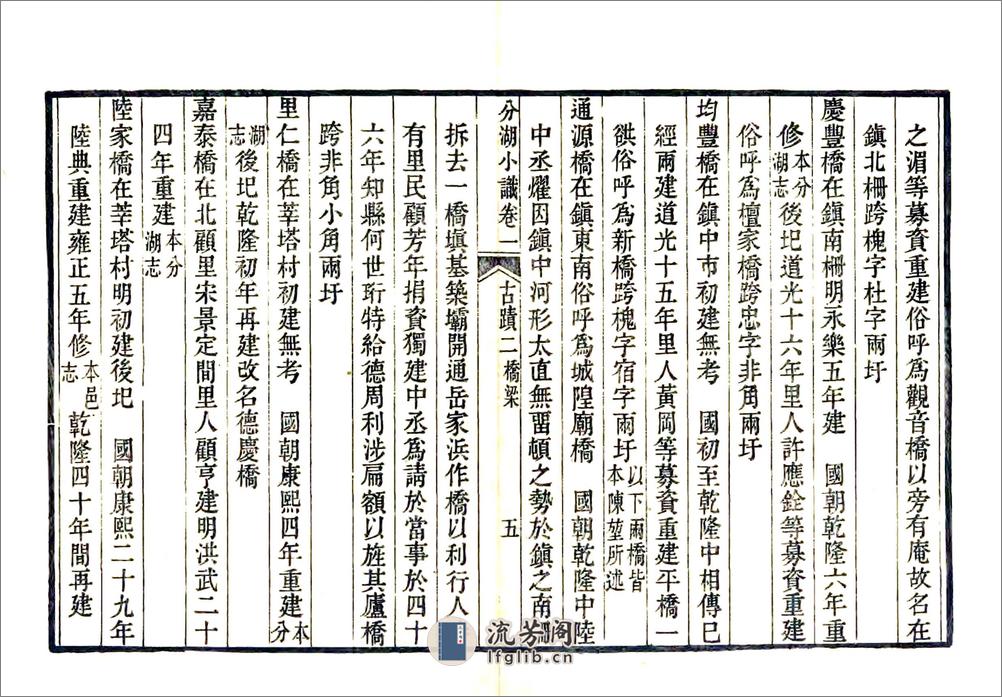 之湄等募資重建俗呼爲觀音橋以旁有庵故名在
鎮北柵跨槐字杜字兩圩
慶豐橋在鎮南柵明永樂五年建　國朝乾隆六年重
修本分湖志後圮道光十六年里人許應銓等募資重建
俗呼爲檀家橋跨忠字非角兩圩
均豐橋在鎮中市初建無考　國初至乾隆中相傳已
經兩建道光十五年里人黃岡等募資重建平橋一
㳟俗呼爲新橋跨槐字宿字兩圩以下兩橋皆本陳堃所述
通源橋在鎮東南俗呼爲城隍廟橋　國朝乾隆中陸
中丞燿因鎮中河形太直無畱頓之勢於鎮之南
分湖小識卷一　古蹟二橋梁　五
拆去一橋塡基築壩開通岳家浜作橋以利行人
有里民顧芳年捐資獨建中丞爲請於當事於四十
六年知縣何世珩特給德周利涉扁額以旌其廬橋
跨非角小角兩圩
里仁橋在莘塔村初建無考　國朝康熙四年重建本分
湖志後圮乾隆初年再建改名德慶橋
嘉泰橋在北顧里宋景定間里人顧亨建明洪武二十
四年重建本分湖志
陸家橋在莘塔村明初建後圮　國朝康熙二十九年
陸典重建雍正五年修本邑志乾隆四十年間再建
流芳閣
lfglib.cn